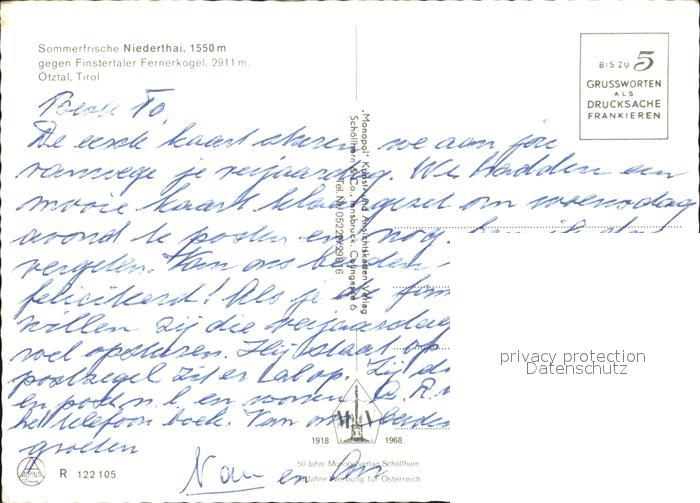 Sommerfrische Niederthai, 1550 m
gegen Finstertaler Fernerkogel, 2911 m,
Ötztal, Tirol
BIS ZU 5
GRUSSWORTEN
ALS
DRUCKSACHE
FRANKIEREN
Beste To,
De eerste kaart sturen we aan jou
vanwege je verjaardag. We hadden een
mooie kaart klaargezet om woensdag
avond te posten en nog
vergeten. Van ons beiden
gefeliciteerd! Als je de
willen zij die verjaardag
wel opsturen. Hij staat op
postzegel zit er al op.
en
het telefoon boek. Van ons beiden
groeten
en
"Monopol" Kunst- und Ansichtskarten Verlag
Schöllhorn & Co., Innsbruck,
Tel. Nr.
privacy protection
Datenschutz
1918 1968
50 Jahre Monopol Verlag Schöllhorn
Jahre Werbung für Österreich
R 122 105